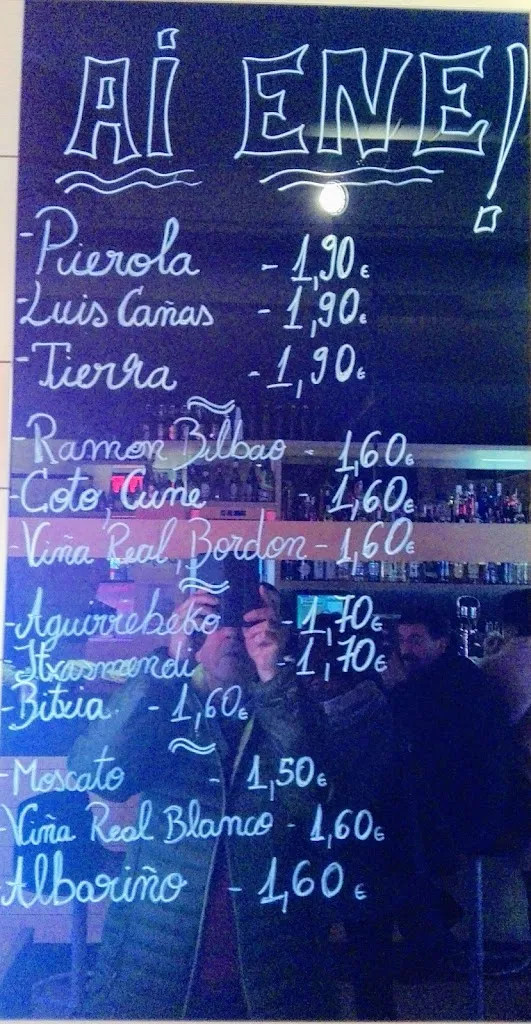 AI ENE!
-Pierola - 1,90€
-Luis Cañas - 1,90€
-Tierra - 1,90€
-Ramon Bilbao 1,60€
-Coto, Cune 1,60€
-Viña Real, Bordon - 1,60€
-Aguirrebeko - 1,70€
-Itxasmendi - 1,70€
-Bitxia - 1,60€
-Moscato - 1,50€
-Viña Real Blanco - 1,60€
Albariño - 1,60€